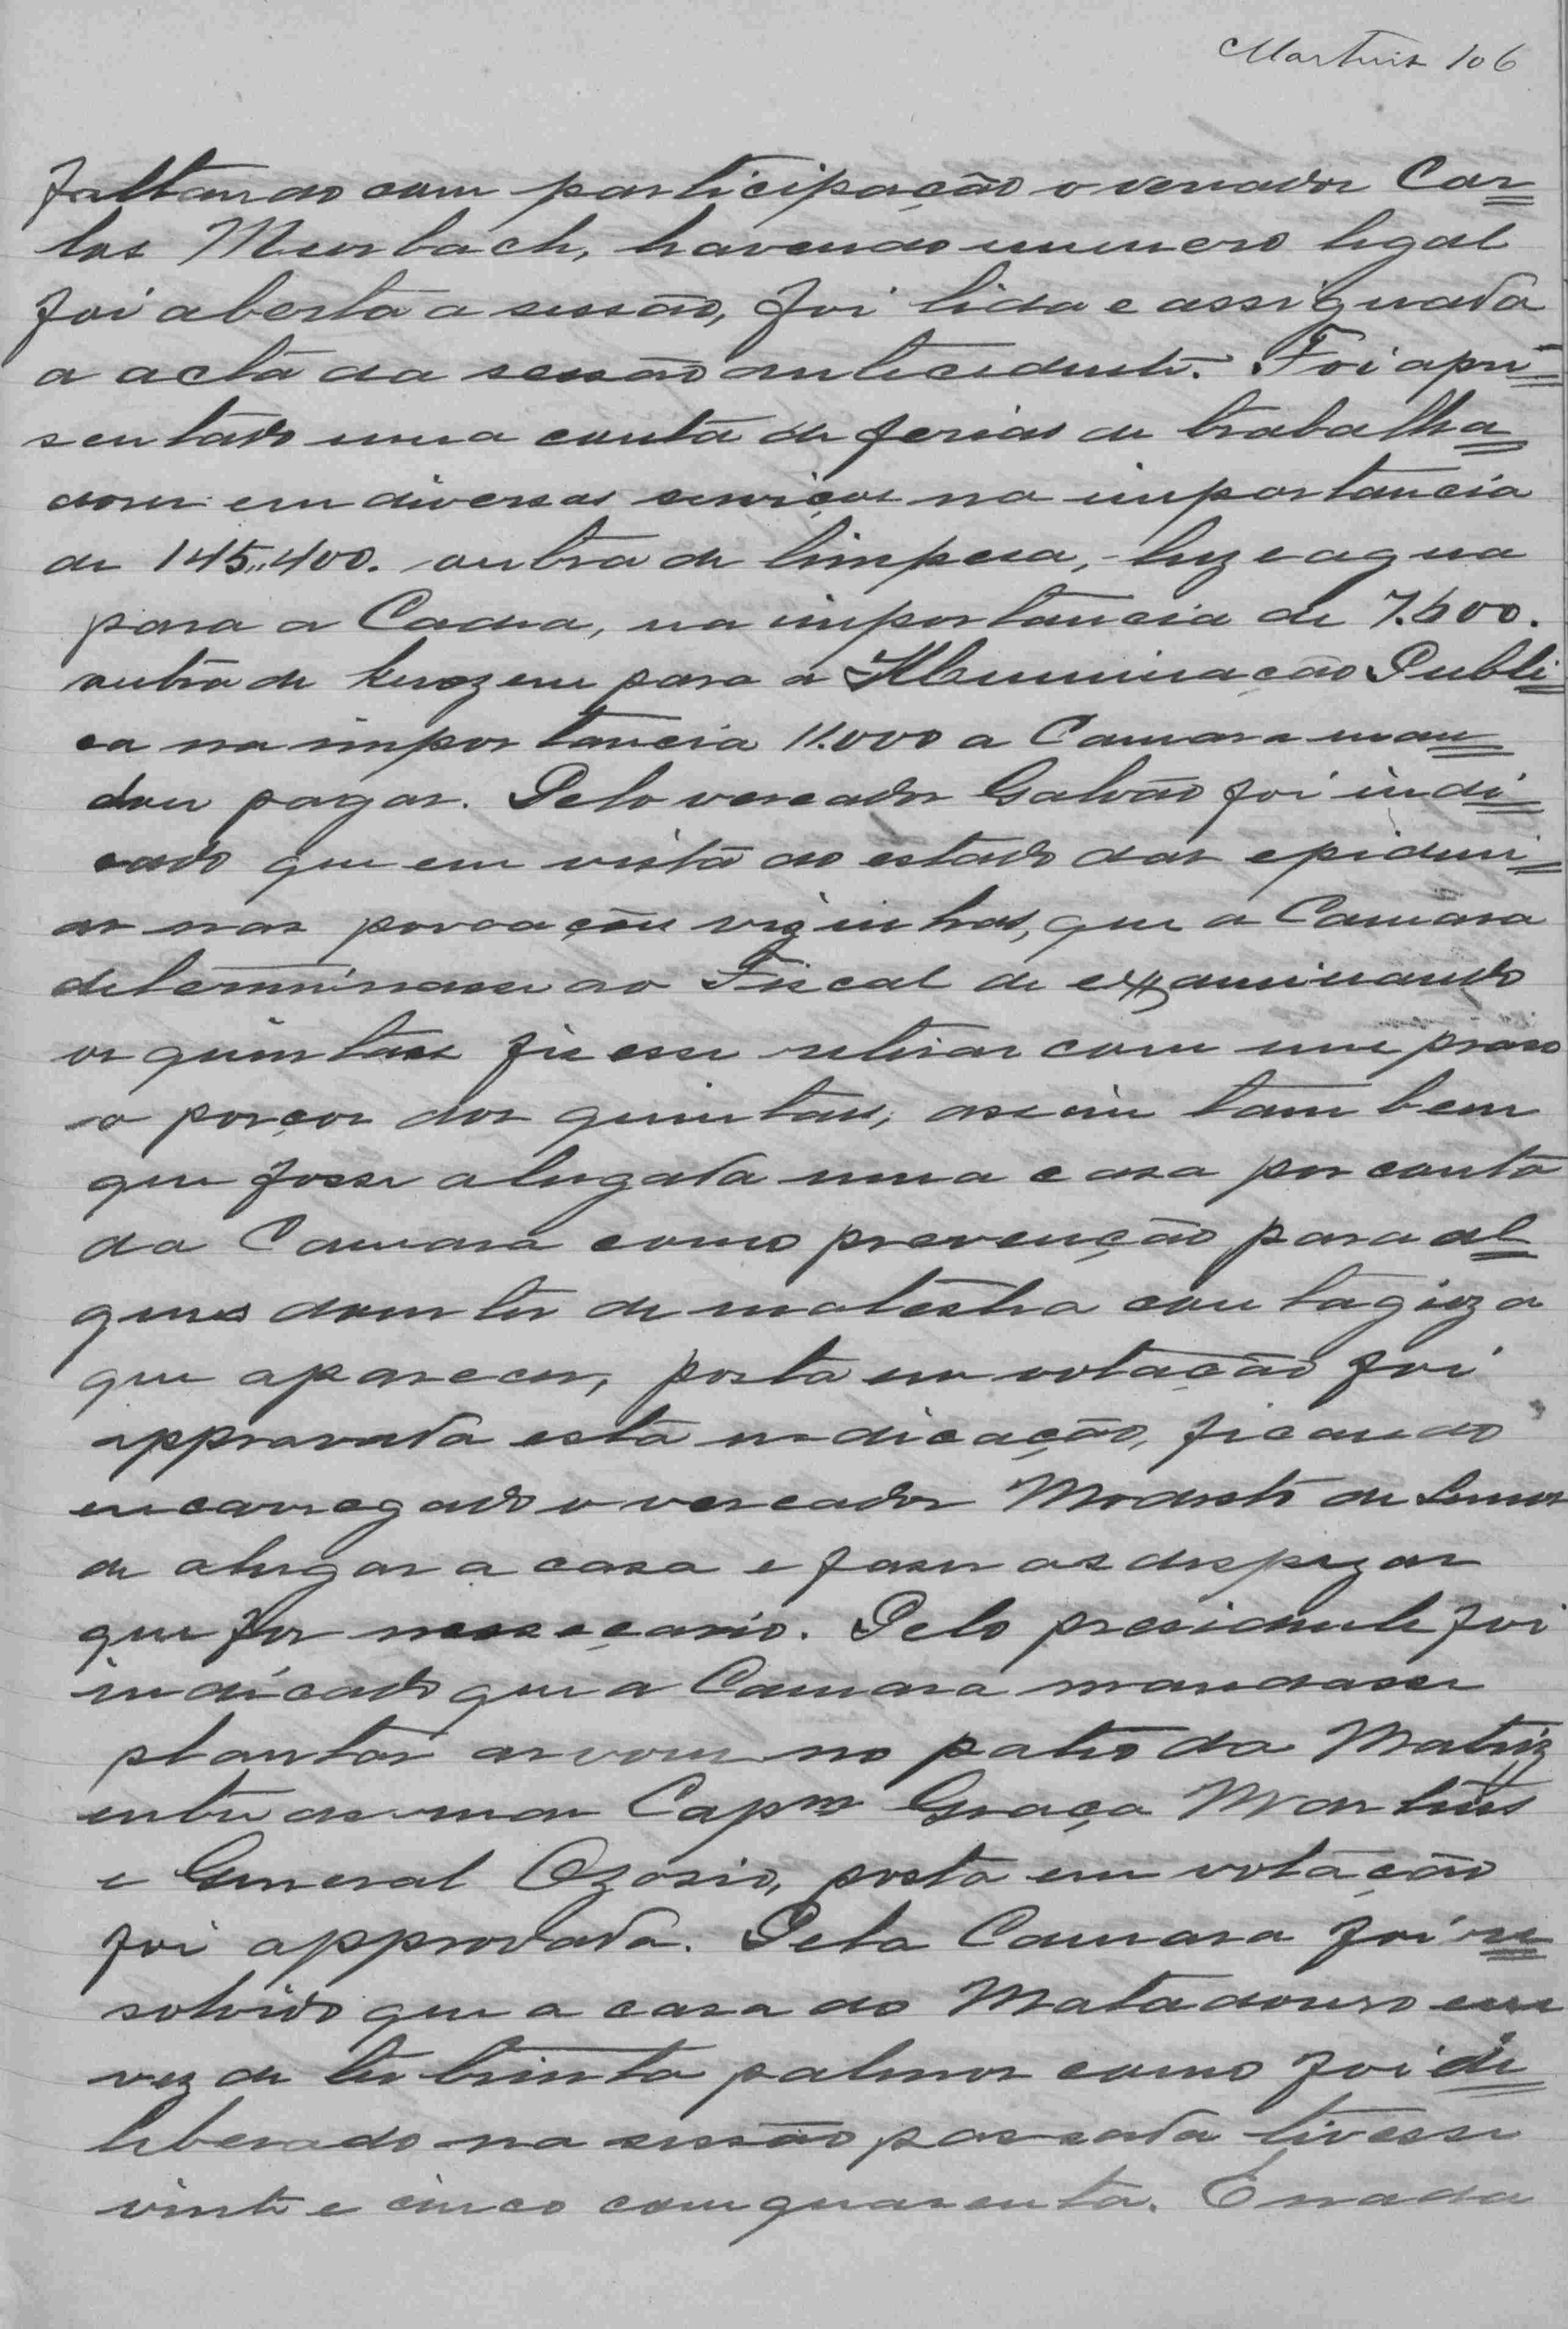 Martins 106
faltando com participação o vereador Car=
los Meurbach, havendo numero legal
foi aberta a sessão, foi lida e assignada
a acta da sessão antecedente. Foi apre=
sentado uma conta de ferias de trabalha=
dores em diversos serviços na importancia
de 145,,400. outra de limpesa, luz e agua
para a Cadea, na importancia de 7.600.
outra de kerozene para a Illuminação Publi=
ca na importancia 11.000 a Camara man=
dou pagar. Pelo vereador Galvão foi indi=
cado que em vista do estado das epidemi=
as nas povoações vizinhas, que a Camara
determinasse ao Fiscal de examinando
os quintaes fizesse retirar com um praso
o porços dos quintaes, assim tambem
que fosse alugada uma casa por conta
da Camara como prevenção para al=
gures doentes de molestia contagioza
que aparecer, posta em votação foi
approvada esta indicação, ficando
encarregado o vereador Modesto de Lemos
de alugar a casa e faser as despezas
que for nessecario. Pelo presidente foi
indicado que a Camara mandasse
plantar arvores no patio da Matriz
entre as ruas Capm Graça Martins
e General Ozorio, posta em votação
foi approvada. Pela Camara foi re=
solvido que a casa do Matadouro em
vez de ter trinta palmos como foi de=
liberado na sessão passada tivesse
vinte e cinco com quarenta. E nada